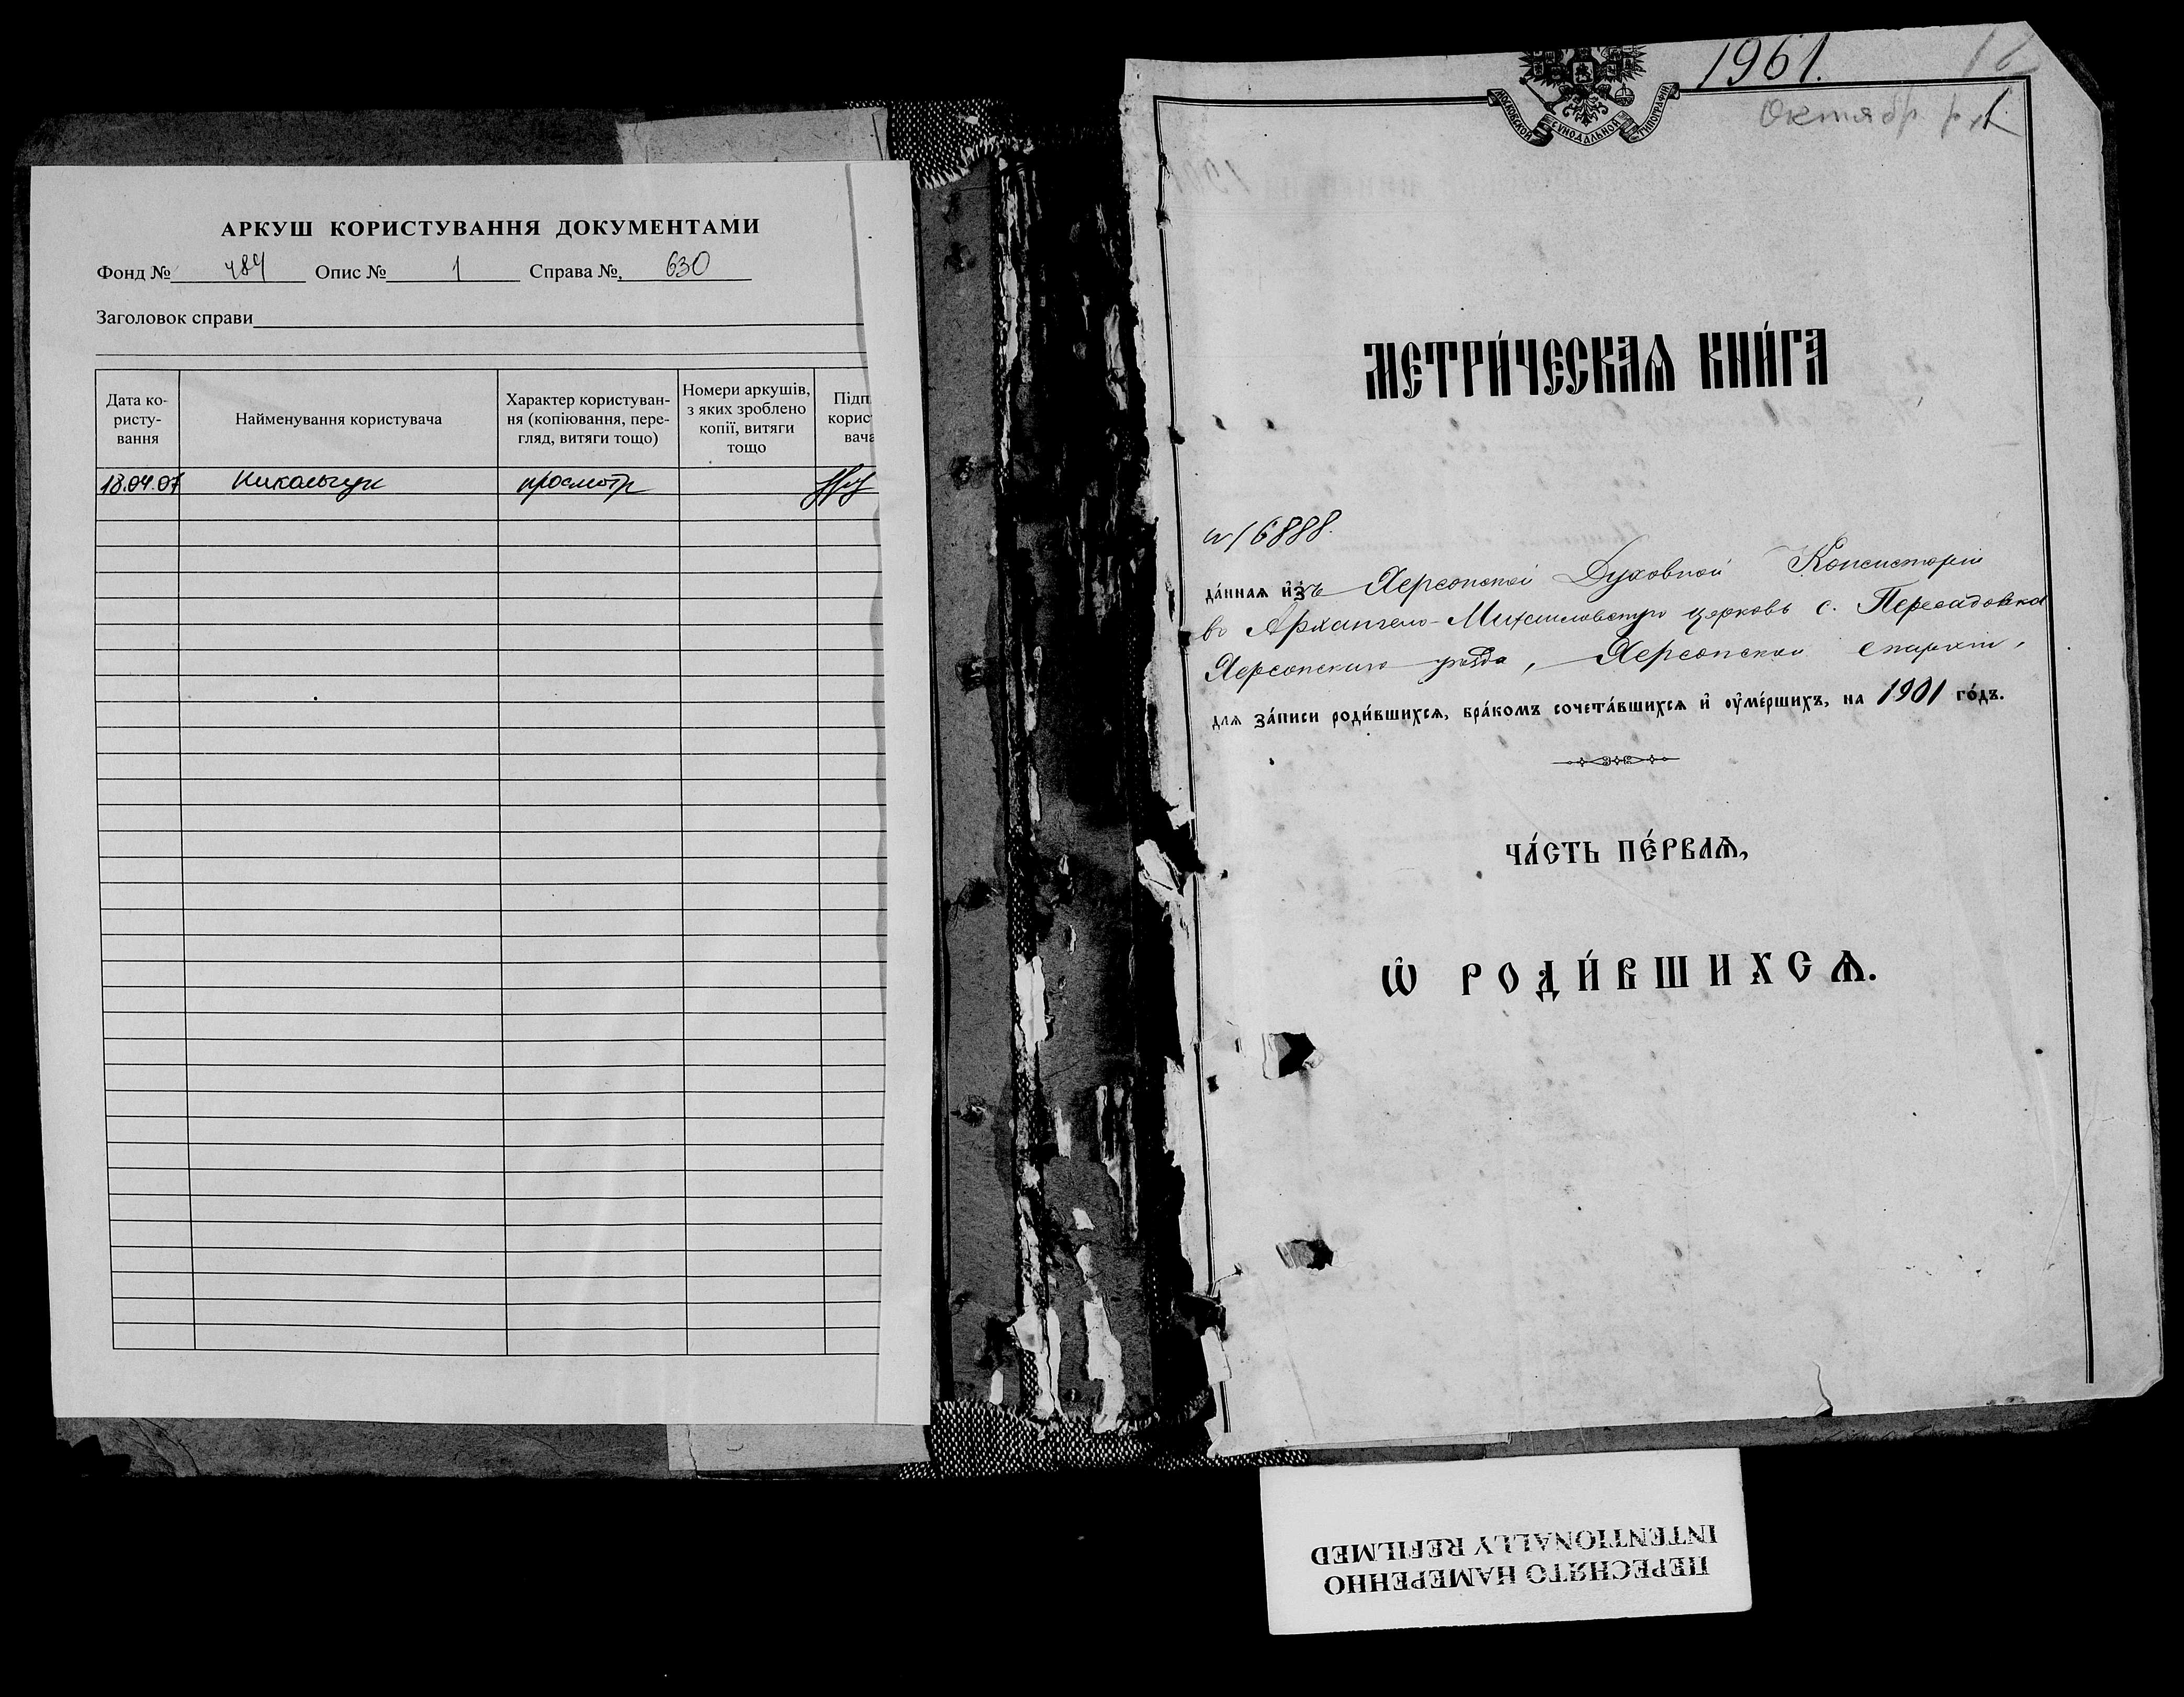 АРКУШ КОРИСТУВАННЯ ДОКУМЕНТАМИ
Фонд № 484 Опис № 1 Справа № 630
Заголовок справи
Дата ко-
ристу-
вання
Найменування користувача
Характер користуван-
ня (копіювання, пере-
гляд, витяги тощо)
Номери аркушів,
з яких зроблено
копії, витяги
тощо
Підп
корис
вача
18.04.07 просмотр
1961.
Октябр. р. 1
МОСКОВСКОЙ СѴНОДАЛЬНОЙ ТИПОГРАФІИ
МЕТРИ́ЧЕСКАѦ КНИ́ГА
№ 16888.
да́ннаѧ и҆зъ Херсонской Духовной Консисторіи
въ Архангело-Михайловскую церковь с. Пересадовка
Херсонскаго уѣзда, Херсонской епархіи,
длѧ за́писи роди́вшихсѧ, бра́комъ сочета́вшихсѧ и҆ ᲂу҆ме́ршихъ, на 1901 го́дъ.
ЧА́СТЬ ПЕ́РВАѦ,
Ѽ РОДИ́ВШИХСѦ.
ПЕРЕСНЯТО НАМЕРЕННО
INTENTIONALLY REFILMED